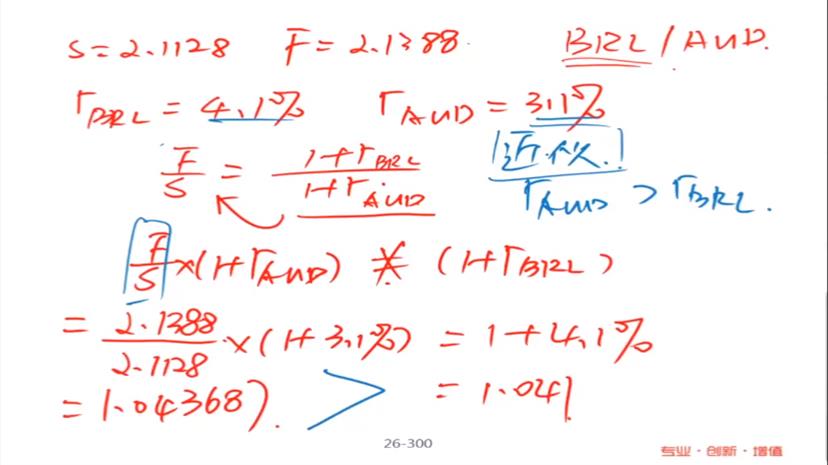 S=2.1128 F=2.1388. BRL/AUD.
rBRL=4.1% rAUD=3.1%
F/S = 1+rBRL/1+rAUD 近似!
rAUD > rBRL.
F/S×(1+rAUD) ≠ (1+rBRL)
= 2.1388/2.1128 ×(1+3.1%) = 1+4.1%
= 1.04368) > = 1.041
26-300
专业·创新·增值